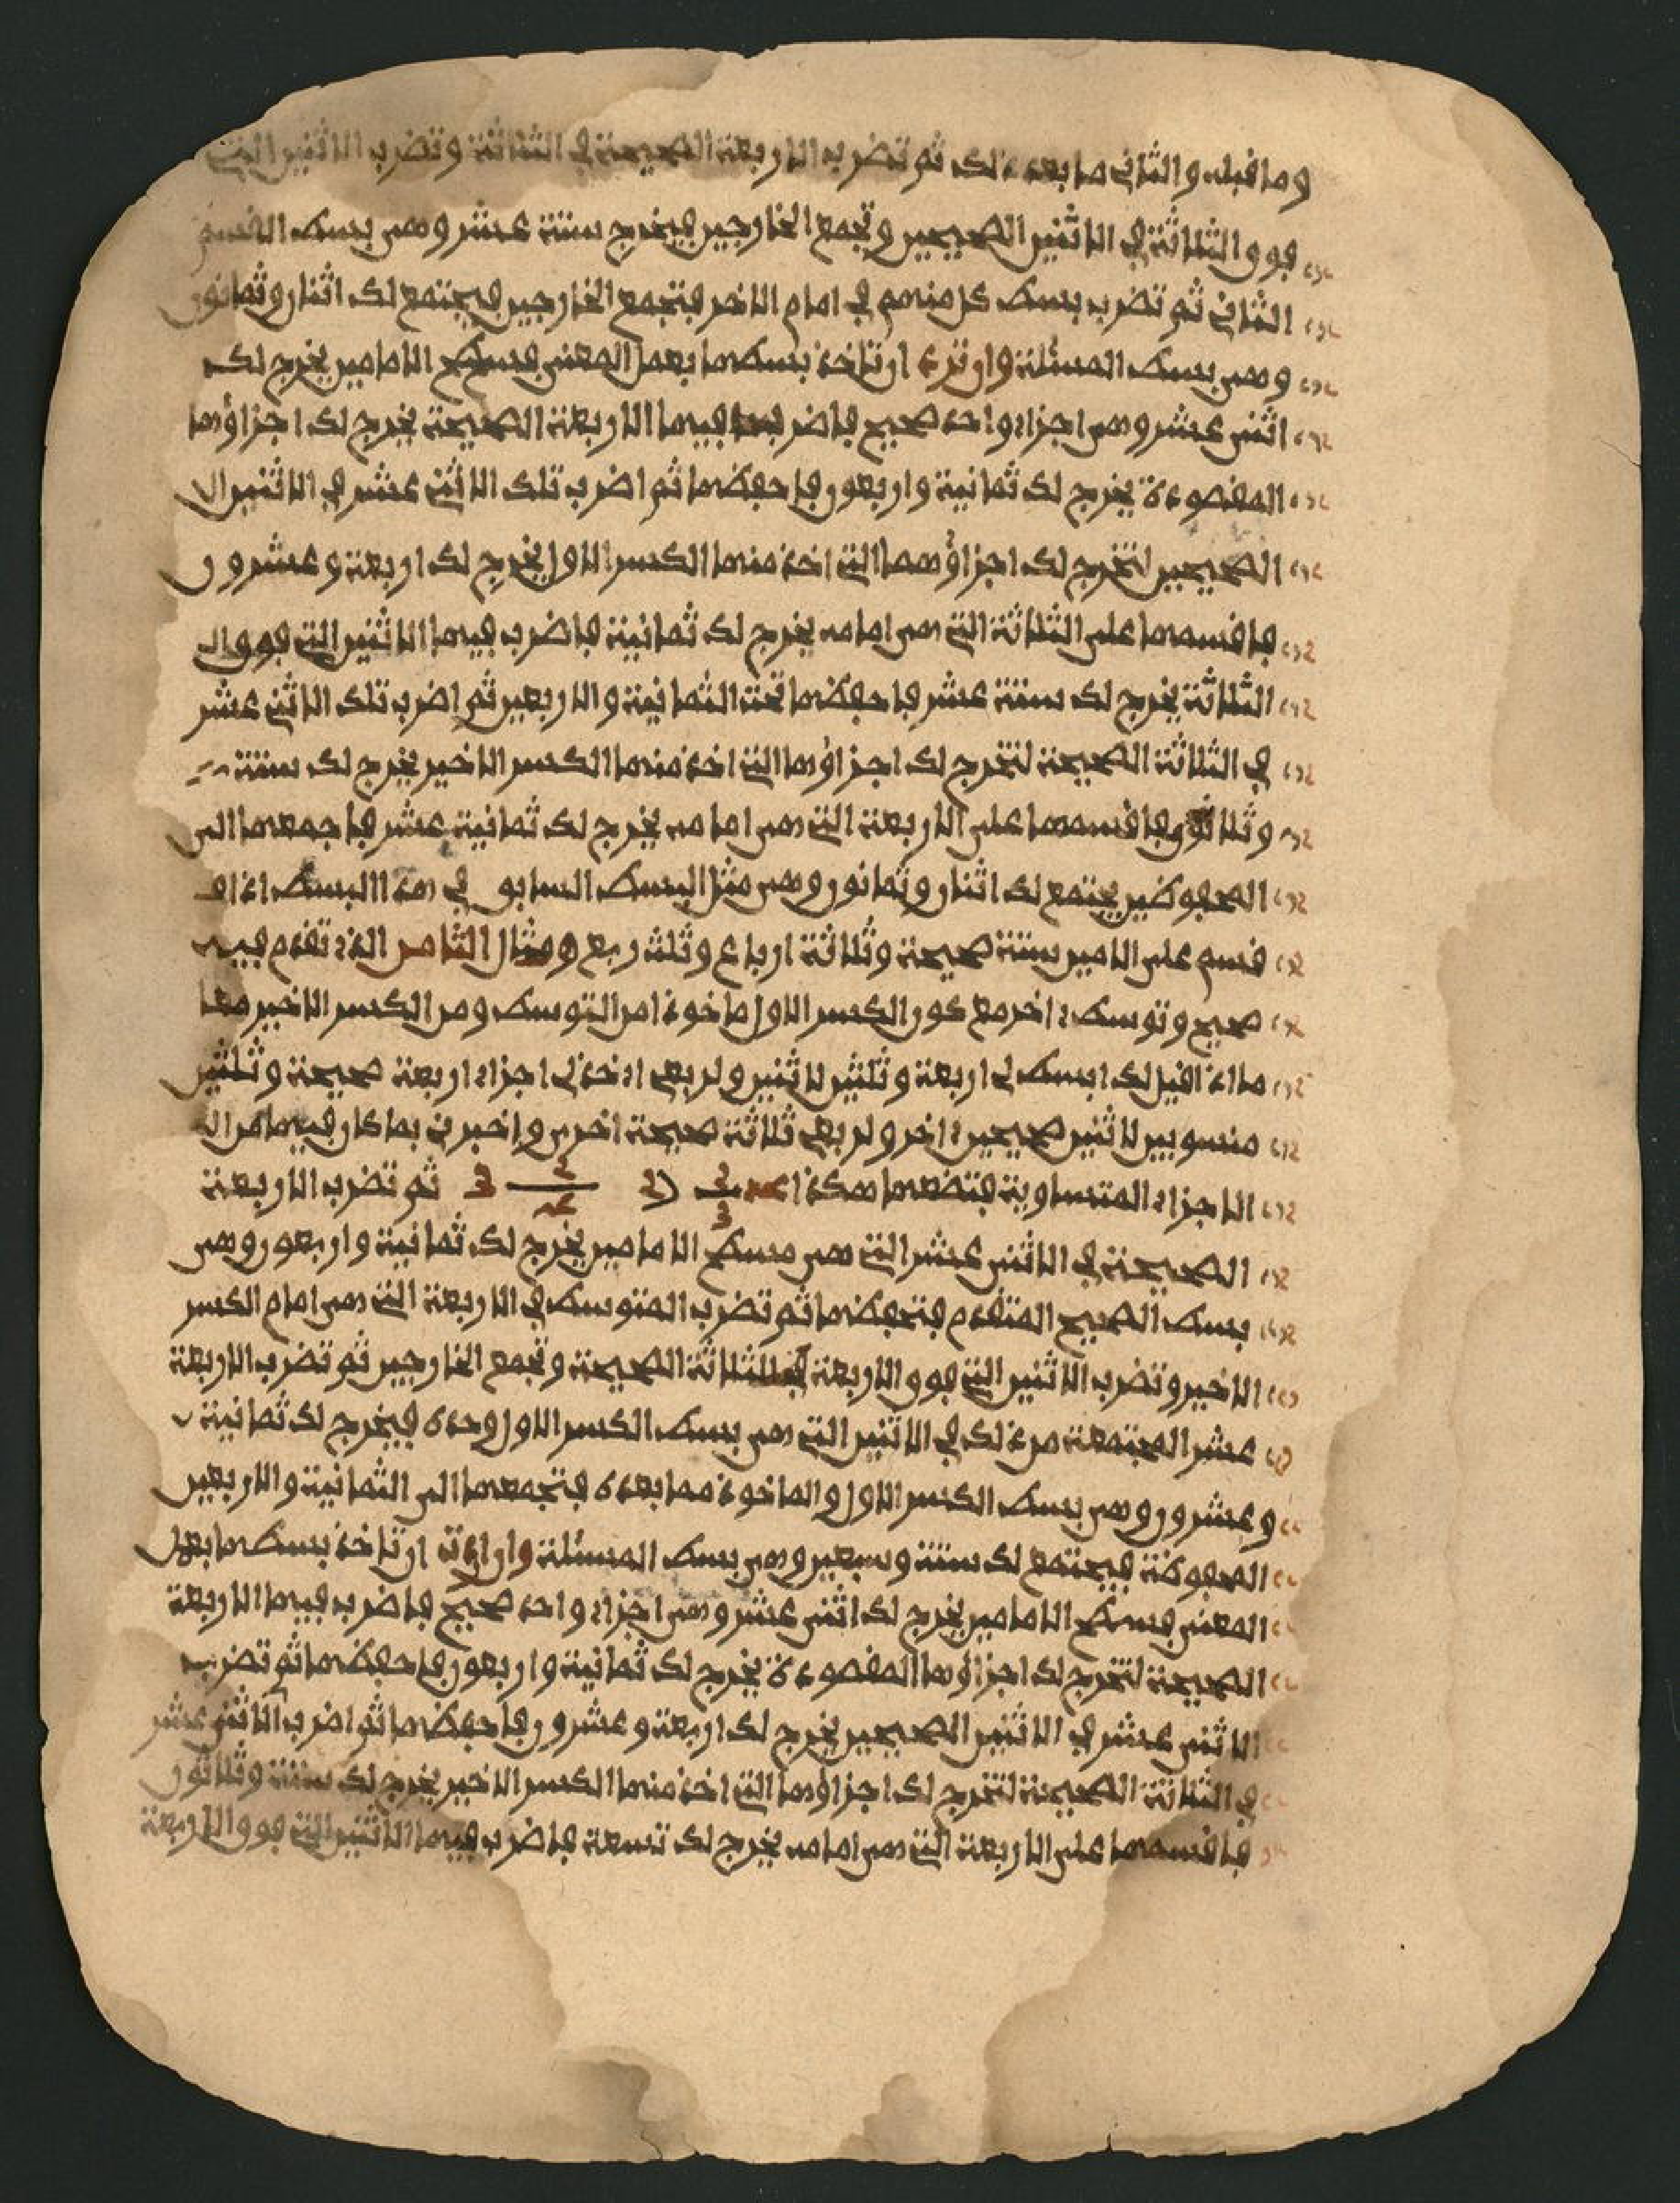 وما قبله والثاني ما بعد ذلك ثم تضرب الاربعة الصحيحة في الثلاثة وتضرب الاثنين التي
فوق الثلاثة في الاثنين الصحيحين وتجمع الخارجين فيخرج ستة عشر وهي بسط القسم
الثاني ثم تضرب بسط كل منهم في امام الاخر فتجمع الخارجين فيجتمع لك اثنان وثمانون
وهي بسط المسئلة وان ترد ان تاخذ بسطها بعمل المعنى فسطح الامامين يخرج لك
اثنى عشر وهي اجزاء واحد صحيح فاضرب فيها الاربعة الصحيحة يخرج لك اجزاؤها
المقصودة يخرج لك ثمانية واربعون فاحفظها ثم اضرب تلك الاثنى عشر في الاثنين ال
الصحيحين لتخرج لك اجزاؤهما التي اخذ منها الكسر الاول يخرج لك اربعة وعشرون
فاقسمها على الثلاثة التي هي امامه يخرج لك ثمانية فاضرب فيها الاثنين التي فوق ال
الثلاثة يخرج لك ستة عشر فاحفظها تحت الثمانية والاربعين ثم اضرب تلك الاثنى عشر
في الثلاثة الصحيحة لتخرج لك اجزاؤها التي اخذ منها الكسر الاخير يخرج لك ستة
وثلاثون فاقسمها على الاربعة التي هي امامه يخرج لك ثمانية عشر فاجمعها الى
المحفوظين يجتمع لك اثنان وثمانون وهي مثل البسط السابق في هذا البسط اذا
قسم على الامين ستة صحيحة وثلاثة ارباع وثلث ربع ومثال الثامن الذي تقدم فيه
صحيح وتوسط اخر مع كون الكسر الاول ماخوذا من التوسط ومن الكسر الاخير معا
ما اذا قيل لك ابسط لي اربعة وثلثين لاثنين ولربعي اي خذ لي اجزاء اربعة صحيحة وثلثين
منسوبين لاثنين صحيحين اخر ولربعي ثلاثة صحيحة اخرى واخبرني بما كان فيها من ال
الاجزاء المتساوية فتضعها هكذا ثم تضرب الاربعة
الصحيحة في الاثنى عشر التي هي مسطح الامامين يخرج لك ثمانية واربعون وهي
بسط الصحيح المتقدم فتحفظها ثم تضرب المتوسط في الاربعة التي هي امام الكسر
الاخير وتضرب الاثنين التي فوق الاربعة في الثلاثة الصحيحة وتجمع الخارجين ثم تضرب الاربعة
عشر المجتمعة من ذلك في الاثنين التي هي بسط الكسر الاول وحده فيخرج لك ثمانية
وعشرون وهي بسط الكسر الاول والماخوذ مما بعده فتجمعها الى الثمانية والاربعين
المحفوظة فيجتمع لك ستة وسبعين وهي بسط المسئلة وان اردت ان تاخذ بسطها بعمل
المعنى فسطح الامامين يخرج لك اثنى عشر وهي اجزاء واحد صحيح فاضرب فيها الاربعة
الصحيحة لتخرج لك اجزاؤها المقصودة يخرج لك ثمانية واربعون فاحفظها ثم تضرب
الاثنى عشر في الاثنين الصحيحين يخرج لك اربعة وعشرون فاحفظها ثم اضرب الاثنى عشر
في الثلاثة الصحيحة لتخرج لك اجزاؤها التي اخذ منها الكسر الاخير يخرج لك ستة وثلاثون
فاقسمها على الاربعة التي هي امامه يخرج لك تسعة فاضرب فيها الاثنين التي فوق الاربعة